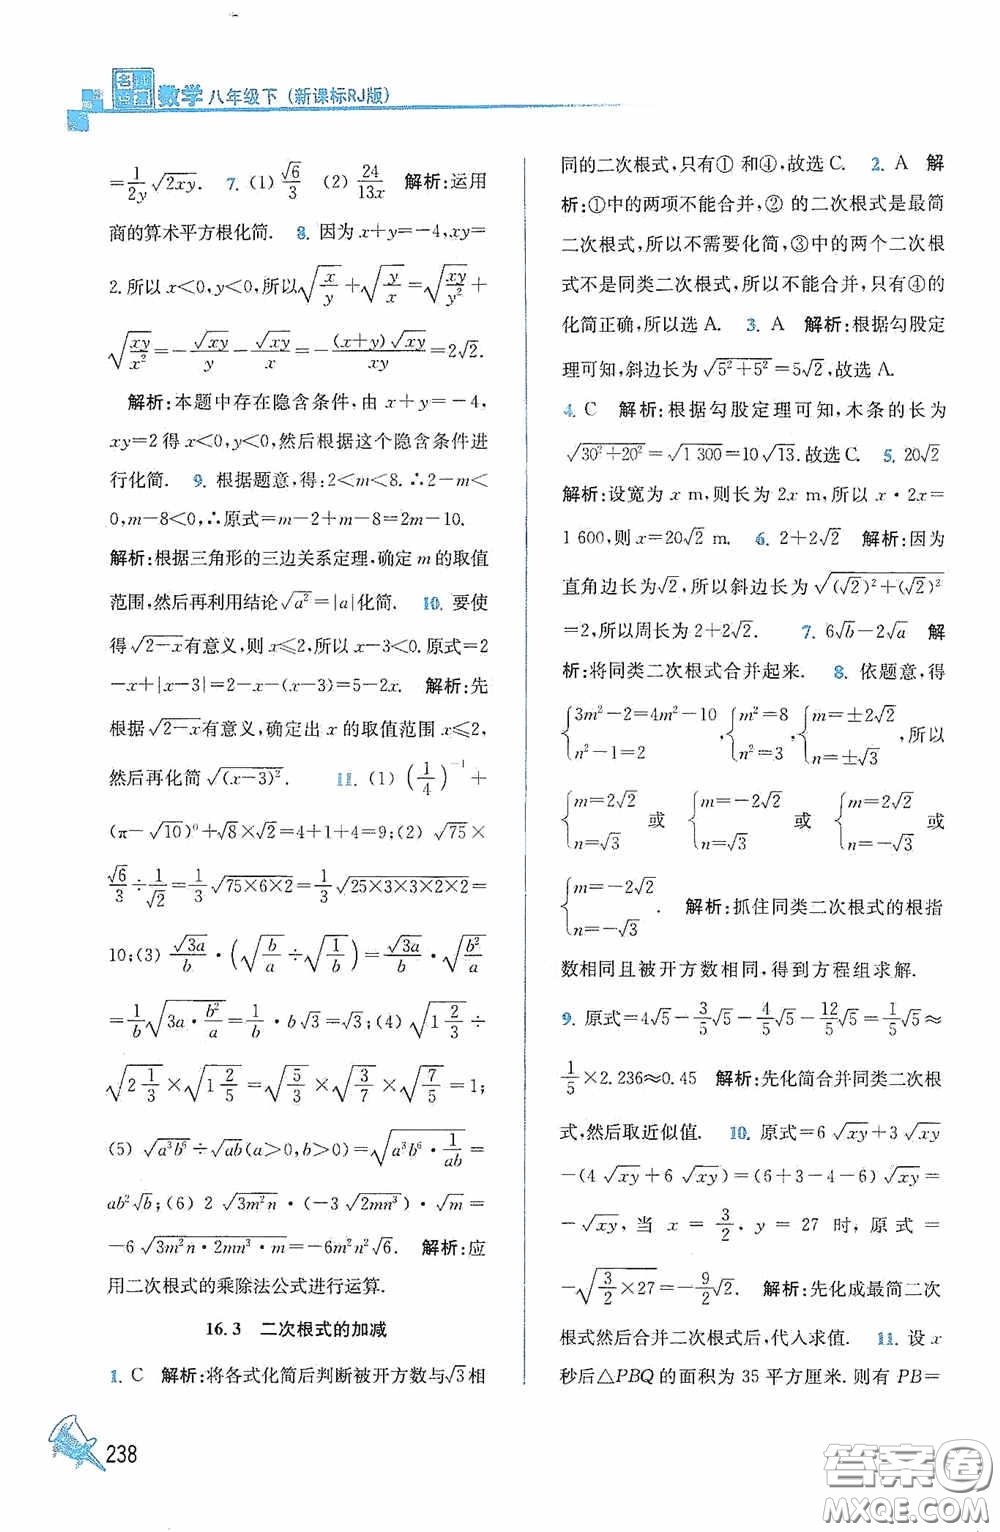 名师点拨 数学八年级下(新课标RJ版)
=1/(2y)√(2xy). 7. (1) √6/3 (2) 24/(13x) 解析:运用
商的算术平方根化简. 8. 因为 x+y=-4,xy=
2.所以 x<0,y<0,所以√(x/y)+√(y/x)=√(xy/y²)+
√(xy/x²)=-√(xy)/y-√(xy)/x=-(x+y)√(xy)/(xy)=2√2.
解析:本题中存在隐含条件,由 x+y=-4,
xy=2 得 x<0,y<0,然后根据这个隐含条件进
行化简. 9. 根据题意,得:2<m<8.∴2-m<
0,m-8<0,∴原式=m-2+m-8=2m-10.
解析:根据三角形的三边关系定理,确定 m 的取值
范围,然后再利用结论√(a²)=|a|化简. 10. 要使
得√(2-x)有意义,则 x≤2,所以 x-3<0.原式=2
-x+|x-3|=2-x-(x-3)=5-2x. 解析:先
根据√(2-x)有意义,确定出 x 的取值范围 x≤2,
然后再化简√((x-3)²). 11. (1) (1/4)⁻¹+
(π-√10)⁰+√8×√2=4+1+4=9;(2) √75×
√6/3÷1/√2=1/3√(75×6×2)=1/3√(25×3×3×2×2)=
10;(3) √(3a)/b·(√(b/a)÷√(1/b))=√(3a)/b·√(b²/a)
=1/b√(3a·b²/a)=1/b·b√3=√3;(4) √(1 2/3)÷
√(2 1/3)×√(1 2/5)=√(5/3)×√(3/7)×√(7/5)=1;
(5) √(a³b⁶)÷√(ab)(a>0,b>0)=√(a³b⁶·1/(ab))=
ab²√b;(6) 2√(3m²n)·(-3√(2mn³))·√m=
-6√(3m²n·2mn³·m)=-6m²n²√6. 解析:应
用二次根式的乘除法公式进行运算.
16.3 二次根式的加减
1. C 解析:将各式化简后判断被开方数与√3相
同的二次根式,只有① 和④,故选 C. 2. A 解
析:①中的两项不能合并,② 的二次根式是最简
二次根式,所以不需要化简,③中的两个二次根
式不是同类二次根式,所以不能合并,只有④的
化简正确,所以选 A. 3. A 解析:根据勾股定
理可知,斜边长为√(5²+5²)=5√2,故选 A.
4. C 解析:根据勾股定理可知,木条的长为
√(30²+20²)=√(1 300)=10√13.故选 C. 5. 20√2
解析:设宽为 x m,则长为 2x m,所以 x·2x=
1 600,则 x=20√2 m. 6. 2+2√2 解析:因为
直角边长为√2,所以斜边长为√((√2)²+(√2)²)
=2,所以周长为 2+2√2. 7. 6√b-2√a 解
析:将同类二次根式合并起来. 8. 依题意,得
{3m²-2=4m²-10 n²-1=2,{m²=8 n²=3,{m=±2√2 n=±√3,所以
{m=2√2 n=√3 或 {m=-2√2 n=√3 或 {m=2√2 n=-√3 或
{m=-2√2 n=-√3. 解析:抓住同类二次根式的根指
数相同且被开方数相同,得到方程组求解.
9. 原式=4√5-3/5√5-4/5√5-12/5√5=1/5√5≈
1/5×2.236≈0.45 解析:先化简合并同类二次根
式,然后取近似值. 10. 原式=6√(xy)+3√(xy)
-(4√(xy)+6√(xy))=(6+3-4-6)√(xy)=
-√(xy),当 x=3/2,y=27 时,原式=
-√(3/2×27)=-9/2√2. 解析:先化成最简二次
根式然后合并二次根式后,代入求值. 11. 设 x
秒后△PBQ的面积为 35 平方厘米.则有 PB=
238
答案圈
MXQE.COM